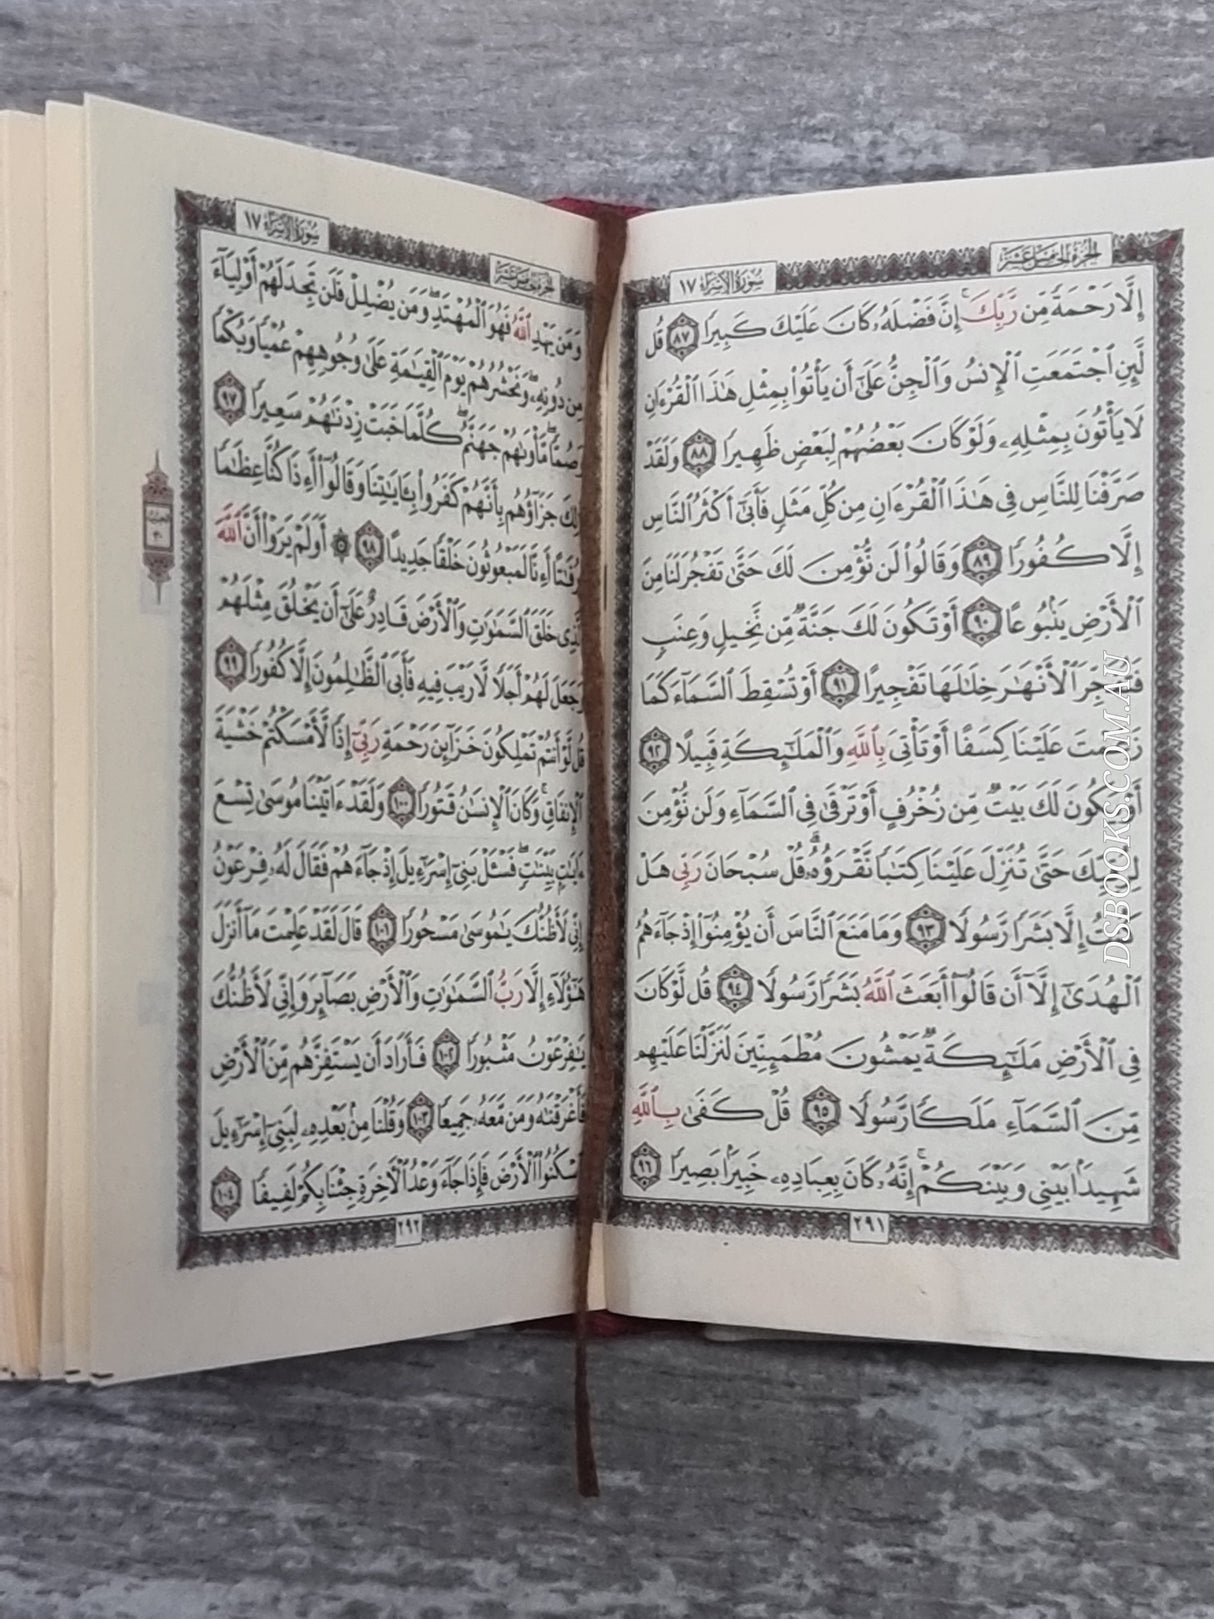 الجزء الخامس عشر
سورة الإسراء ١٧
إِلَّا رَحْمَةً مِّن رَّبِّكَ ۚ إِنَّ فَضْلَهُۥ كَانَ عَلَيْكَ كَبِيرًا ٨٧ قُل
لَّئِنِ ٱجْتَمَعَتِ ٱلْإِنسُ وَٱلْجِنُّ عَلَىٰٓ أَن يَأْتُوا۟ بِمِثْلِ هَٰذَا ٱلْقُرْءَانِ
لَا يَأْتُونَ بِمِثْلِهِۦ وَلَوْ كَانَ بَعْضُهُمْ لِبَعْضٍ ظَهِيرًا ٨٨ وَلَقَدْ
صَرَّفْنَا لِلنَّاسِ فِى هَٰذَا ٱلْقُرْءَانِ مِن كُلِّ مَثَلٍ فَأَبَىٰٓ أَكْثَرُ ٱلنَّاسِ
إِلَّا كُفُورًا ٨٩ وَقَالُوا۟ لَن نُّؤْمِنَ لَكَ حَتَّىٰ تَفْجُرَ لَنَا مِنَ
ٱلْأَرْضِ يَنۢبُوعًا ٩٠ أَوْ تَكُونَ لَكَ جَنَّةٌ مِّن نَّخِيلٍ وَعِنَبٍ
ٱلْأَنْهَٰرَ خِلَٰلَهَا تَفْجِيرًا ٩١ أَوْ تُسْقِطَ ٱلسَّمَآءَ كَمَا
عَلَيْنَا كِسَفًا أَوْ تَأْتِىَ بِٱللَّهِ وَٱلْمَلَٰٓئِكَةِ قَبِيلًا ٩٢
لَكَ بَيْتٌ مِّن زُخْرُفٍ أَوْ تَرْقَىٰ فِى ٱلسَّمَآءِ وَلَن نُّؤْمِنَ
حَتَّىٰ تُنَزِّلَ عَلَيْنَا كِتَٰبًا نَّقْرَؤُهُۥ ۗ قُلْ سُبْحَانَ رَبِّى هَلْ
إِلَّا بَشَرًا رَّسُولًا ٩٣ وَمَا مَنَعَ ٱلنَّاسَ أَن يُؤْمِنُوٓا۟ إِذْ جَآءَهُمُ
ٱلْهُدَىٰٓ إِلَّآ أَن قَالُوٓا۟ أَبَعَثَ ٱللَّهُ بَشَرًا رَّسُولًا ٩٤ قُل لَّوْ كَانَ
فِى ٱلْأَرْضِ مَلَٰٓئِكَةٌ يَمْشُونَ مُطْمَئِنِّينَ لَنَزَّلْنَا عَلَيْهِم
مِّنَ ٱلسَّمَآءِ مَلَكًا رَّسُولًا ٩٥ قُلْ كَفَىٰ بِٱللَّهِ
شَهِيدًۢا بَيْنِى وَبَيْنَكُمْ ۚ إِنَّهُۥ كَانَ بِعِبَادِهِۦ خَبِيرًۢا بَصِيرًا ٩٦
٢٩١
الجزء الخامس عشر
سورة الإسراء ١٧
وَمَن يَهْدِ ٱللَّهُ فَهُوَ ٱلْمُهْتَدِ ۖ وَمَن يُضْلِلْ فَلَن تَجِدَ لَهُمْ أَوْلِيَآءَ
مِن دُونِهِۦ ۖ وَنَحْشُرُهُمْ يَوْمَ ٱلْقِيَٰمَةِ عَلَىٰ وُجُوهِهِمْ عُمْيًا وَبُكْمًا
وَصُمًّا ۖ مَّأْوَىٰهُمْ جَهَنَّمُ ۖ كُلَّمَا خَبَتْ زِدْنَٰهُمْ سَعِيرًا ٩٧
جَزَآؤُهُم بِأَنَّهُمْ كَفَرُوا۟ بِـَٔايَٰتِنَا وَقَالُوٓا۟ أَءِذَا كُنَّا عِظَٰمًا
وَرُفَٰتًا أَءِنَّا لَمَبْعُوثُونَ خَلْقًا جَدِيدًا ٩٨ ۞ أَوَلَمْ يَرَوْا۟ أَنَّ ٱللَّهَ
ٱلَّذِى خَلَقَ ٱلسَّمَٰوَٰتِ وَٱلْأَرْضَ قَادِرٌ عَلَىٰٓ أَن يَخْلُقَ مِثْلَهُمْ
وَجَعَلَ لَهُمْ أَجَلًا لَّا رَيْبَ فِيهِ فَأَبَى ٱلظَّٰلِمُونَ إِلَّا كُفُورًا ٩٩
قُل لَّوْ أَنتُمْ تَمْلِكُونَ خَزَآئِنَ رَحْمَةِ رَبِّىٓ إِذًا لَّأَمْسَكْتُمْ خَشْيَةَ
ٱلْإِنفَاقِ ۚ وَكَانَ ٱلْإِنسَٰنُ قَتُورًا ١٠٠ وَلَقَدْ ءَاتَيْنَا مُوسَىٰ تِسْعَ
ءَايَٰتٍۭ بَيِّنَٰتٍ ۖ فَسْـَٔلْ بَنِىٓ إِسْرَٰٓءِيلَ إِذْ جَآءَهُمْ فَقَالَ لَهُۥ فِرْعَوْنُ
إِنِّى لَأَظُنُّكَ يَٰمُوسَىٰ مَسْحُورًا ١٠١ قَالَ لَقَدْ عَلِمْتَ مَآ أَنزَلَ
هَٰٓؤُلَآءِ إِلَّا رَبُّ ٱلسَّمَٰوَٰتِ وَٱلْأَرْضِ بَصَآئِرَ وَإِنِّى لَأَظُنُّكَ
يَٰفِرْعَوْنُ مَثْبُورًا ١٠٢ فَأَرَادَ أَن يَسْتَفِزَّهُم مِّنَ ٱلْأَرْضِ
فَأَغْرَقْنَٰهُ وَمَن مَّعَهُۥ جَمِيعًا ١٠٣ وَقُلْنَا مِنۢ بَعْدِهِۦ لِبَنِىٓ إِسْرَٰٓءِيلَ
ٱسْكُنُوا۟ ٱلْأَرْضَ فَإِذَا جَآءَ وَعْدُ ٱلْءَاخِرَةِ جِئْنَا بِكُمْ لَفِيفًا ١٠٤
٢٩٢
الحزب
٣٠
DSBOOKS.COM.AU